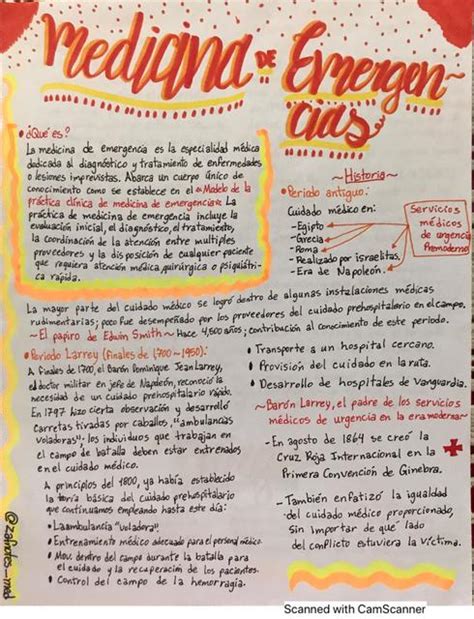 Medicina DE Emergen-
cias
• ¿Qué es?
La medicina de emergencia es la especialidad médica
dedicada al diagnóstico y tratamiento de enfermedades
o lesiones imprevistas. Abarca un cuerpo único de
conocimiento como se establece en el «Modelo de la
práctica clínica de medicina de emergencia». La
práctica de medicina de emergencia incluye la
evaluación inicial, el diagnóstico, el tratamiento,
la coordinación de la atención entre multiples
proveedores y la disposición de cualquier paciente
que requiera atención médica, quirúrgica o psiquiátri-
ca rápida.
~Historia~
• Periodo antiguo:
Cuidado médico en:
- Egipto
- Grecia
- Roma
- Realizado por israelitas.
- Era de Napoleón.
Servicios
médicos
de urgencia
Premodernos
La mayor parte del cuidado médico se logró dentro de algunas instalaciones médicas
rudimentarias; poco fue desempeñado por los proveedores del cuidado prehospitalario en el campo.
~ El papiro de Edwin Smith ~ Hace 4,500 años; contribución al conocimiento de este periodo.
• Periodo Larrey (finales de 1700 ~ 1950):
A finales de 1700, el Barón Dominique Jean Larrey,
el doctor militar en jefe de Napoleón, reconoció la
necesidad de un cuidado prehospitalario rápido.
En 1797 hizo cierta observación y desarrolló
carretas tiradas por caballos, "ambulancias
voladoras"; los individuos que trabajan en
el campo de batalla deben estar entrenados
en el cuidado médico.
A principios del 1800, ya había establecido
la teoría básica del cuidado prehospitalario
que continuamos empleando hasta este día:
• La ambulancia "voladora".
• Entrenamiento médico adecuado para el personal médico.
• Mov. dentro del campo durante la batalla para
el cuidado y la recuperación de los pacientes.
• Control del campo de la hemorragia.
• Transporte a un hospital cercano.
• Provisión del cuidado en la ruta.
• Desarrollo de hospitales de vanguardia.
~Barón Larrey, el padre de los servicios
médicos de urgencia en la era moderna~
- En agosto de 1864 se creó la
Cruz Roja Internacional en la
Primera Convención de Ginebra.
- También enfatizó la igualdad
del cuidado médico proporcionado,
sin importar de qué lado
del conflicto estuviera la víctima.
@zafinotes_med
Scanned with CamScanner